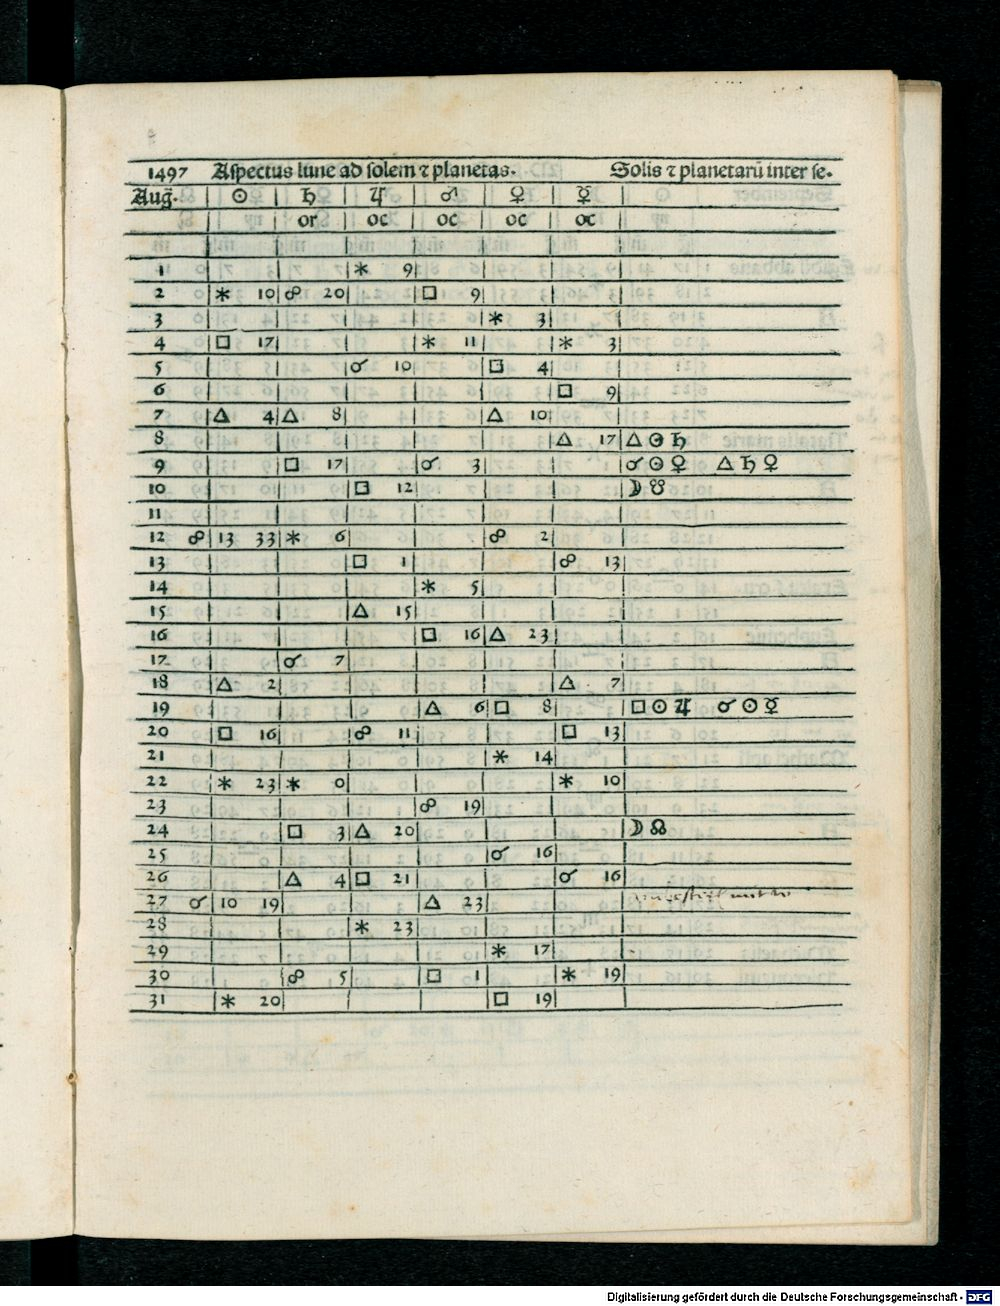 1497 Aspectus lune ad solem ⁊ planetas. Solis ⁊ planetarū inter se.
Aug̃. ☉ ♄ ♃ ♂ ♀ ☿
or oc oc oc oc
1 ⚹ 9
2 ⚹ 10 ☍ 20 □ 9
3 ⚹ 3
4 □ 17 ⚹ 11 ⚹ 3
5 ☌ 10 □ 4
6 □ 9
7 △ 4 △ 8 △ 10
8 △ 17 △ ☉ ♄
9 □ 17 ☌ 3 ☌ ☉ ♀ △ ♄ ♀
10 □ 12 ☽ ☋
11
12 ☍ 13 33 ⚹ 6 ☍ 2
13 □ 1 ☍ 13
14 ⚹ 5
15 △ 15
16 □ 16 △ 23
17 ☌ 7
18 △ 2 △ 7
19 △ 6 □ 8 □ ☉ ♃ ☌ ☉ ☿
20 □ 16 ☍ 11 □ 13
21 ⚹ 14
22 ⚹ 23 ⚹ 0 ⚹ 10
23 ☍ 19
24 □ 3 △ 20 ☽ ☊
25 ☌ 16
26 △ 4 □ 21 ☌ 16
27 ☌ 10 19 △ 23
28 ⚹ 23
29 ⚹ 17
30 ☍ 5 □ 1 ⚹ 19
31 ⚹ 20 □ 19
Digitalisierung gefördert durch die Deutsche Forschungsgemeinschaft - DFG